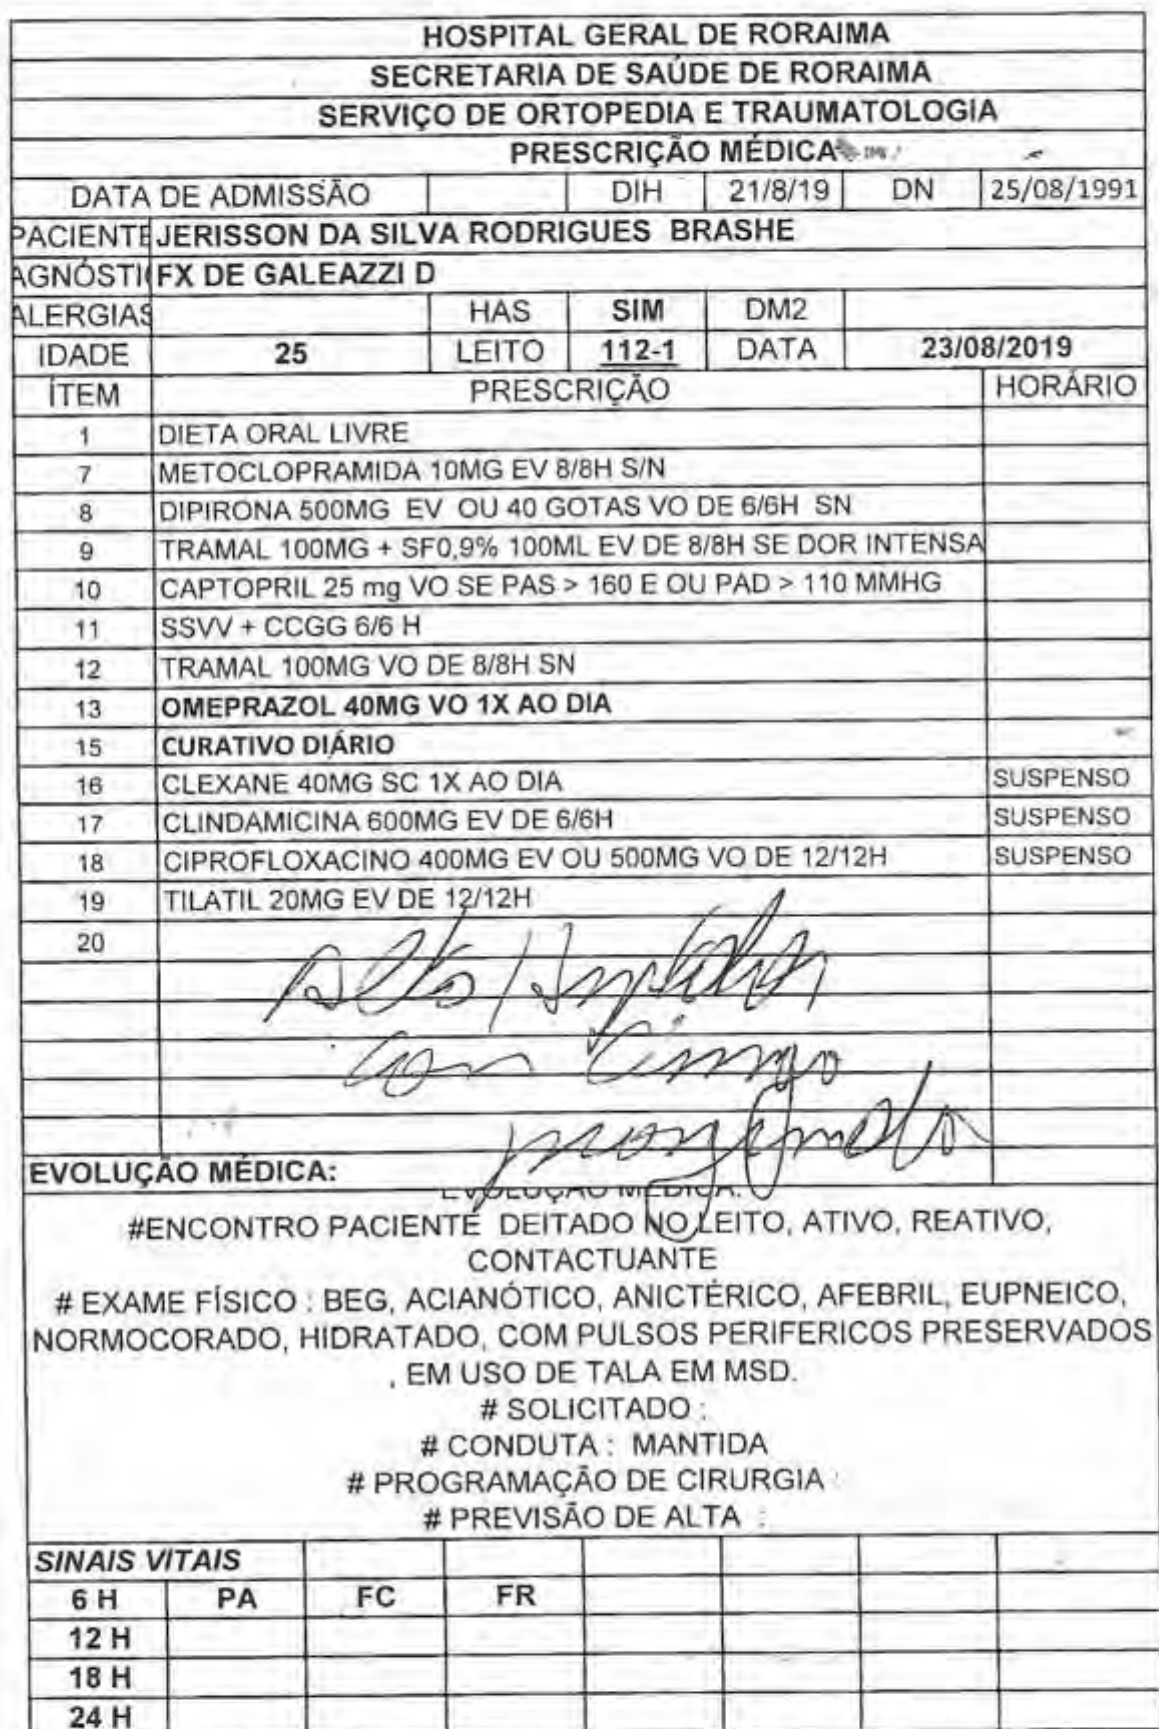 HOSPITAL GERAL DE RORAIMA
SECRETARIA DE SAÚDE DE RORAIMA
SERVIÇO DE ORTOPEDIA E TRAUMATOLOGIA
PRESCRIÇÃO MÉDICA
DATA DE ADMISSÃO DIH 21/8/19 DN 25/08/1991
PACIENTE JERISSON DA SILVA RODRIGUES BRASHE
AGNÓSTI FX DE GALEAZZI D
ALERGIAS HAS SIM DM2
IDADE 25 LEITO 112-1 DATA 23/08/2019
ÍTEM PRESCRIÇÃO HORÁRIO
1 DIETA ORAL LIVRE
7 METOCLOPRAMIDA 10MG EV 8/8H S/N
8 DIPIRONA 500MG EV OU 40 GOTAS VO DE 6/6H SN
9 TRAMAL 100MG + SF0,9% 100ML EV DE 8/8H SE DOR INTENSA
10 CAPTOPRIL 25 mg VO SE PAS > 160 E OU PAD > 110 MMHG
11 SSVV + CCGG 6/6 H
12 TRAMAL 100MG VO DE 8/8H SN
13 OMEPRAZOL 40MG VO 1X AO DIA
15 CURATIVO DIÁRIO
16 CLEXANE 40MG SC 1X AO DIA SUSPENSO
17 CLINDAMICINA 600MG EV DE 6/6H SUSPENSO
18 CIPROFLOXACINO 400MG EV OU 500MG VO DE 12/12H SUSPENSO
19 TILATIL 20MG EV DE 12/12H
20
Alta Hospitalar
com
EVOLUÇÃO MÉDICA:
EVOLUÇÃO MÉDICA:
#ENCONTRO PACIENTE DEITADO NO LEITO, ATIVO, REATIVO,
CONTACTUANTE
# EXAME FÍSICO : BEG, ACIANÓTICO, ANICTÉRICO, AFEBRIL, EUPNEICO,
NORMOCORADO, HIDRATADO, COM PULSOS PERIFERICOS PRESERVADOS
, EM USO DE TALA EM MSD.
# SOLICITADO :
# CONDUTA : MANTIDA
# PROGRAMAÇÃO DE CIRURGIA :
# PREVISÃO DE ALTA :
SINAIS VITAIS
6 H PA FC FR
12 H
18 H
24 H